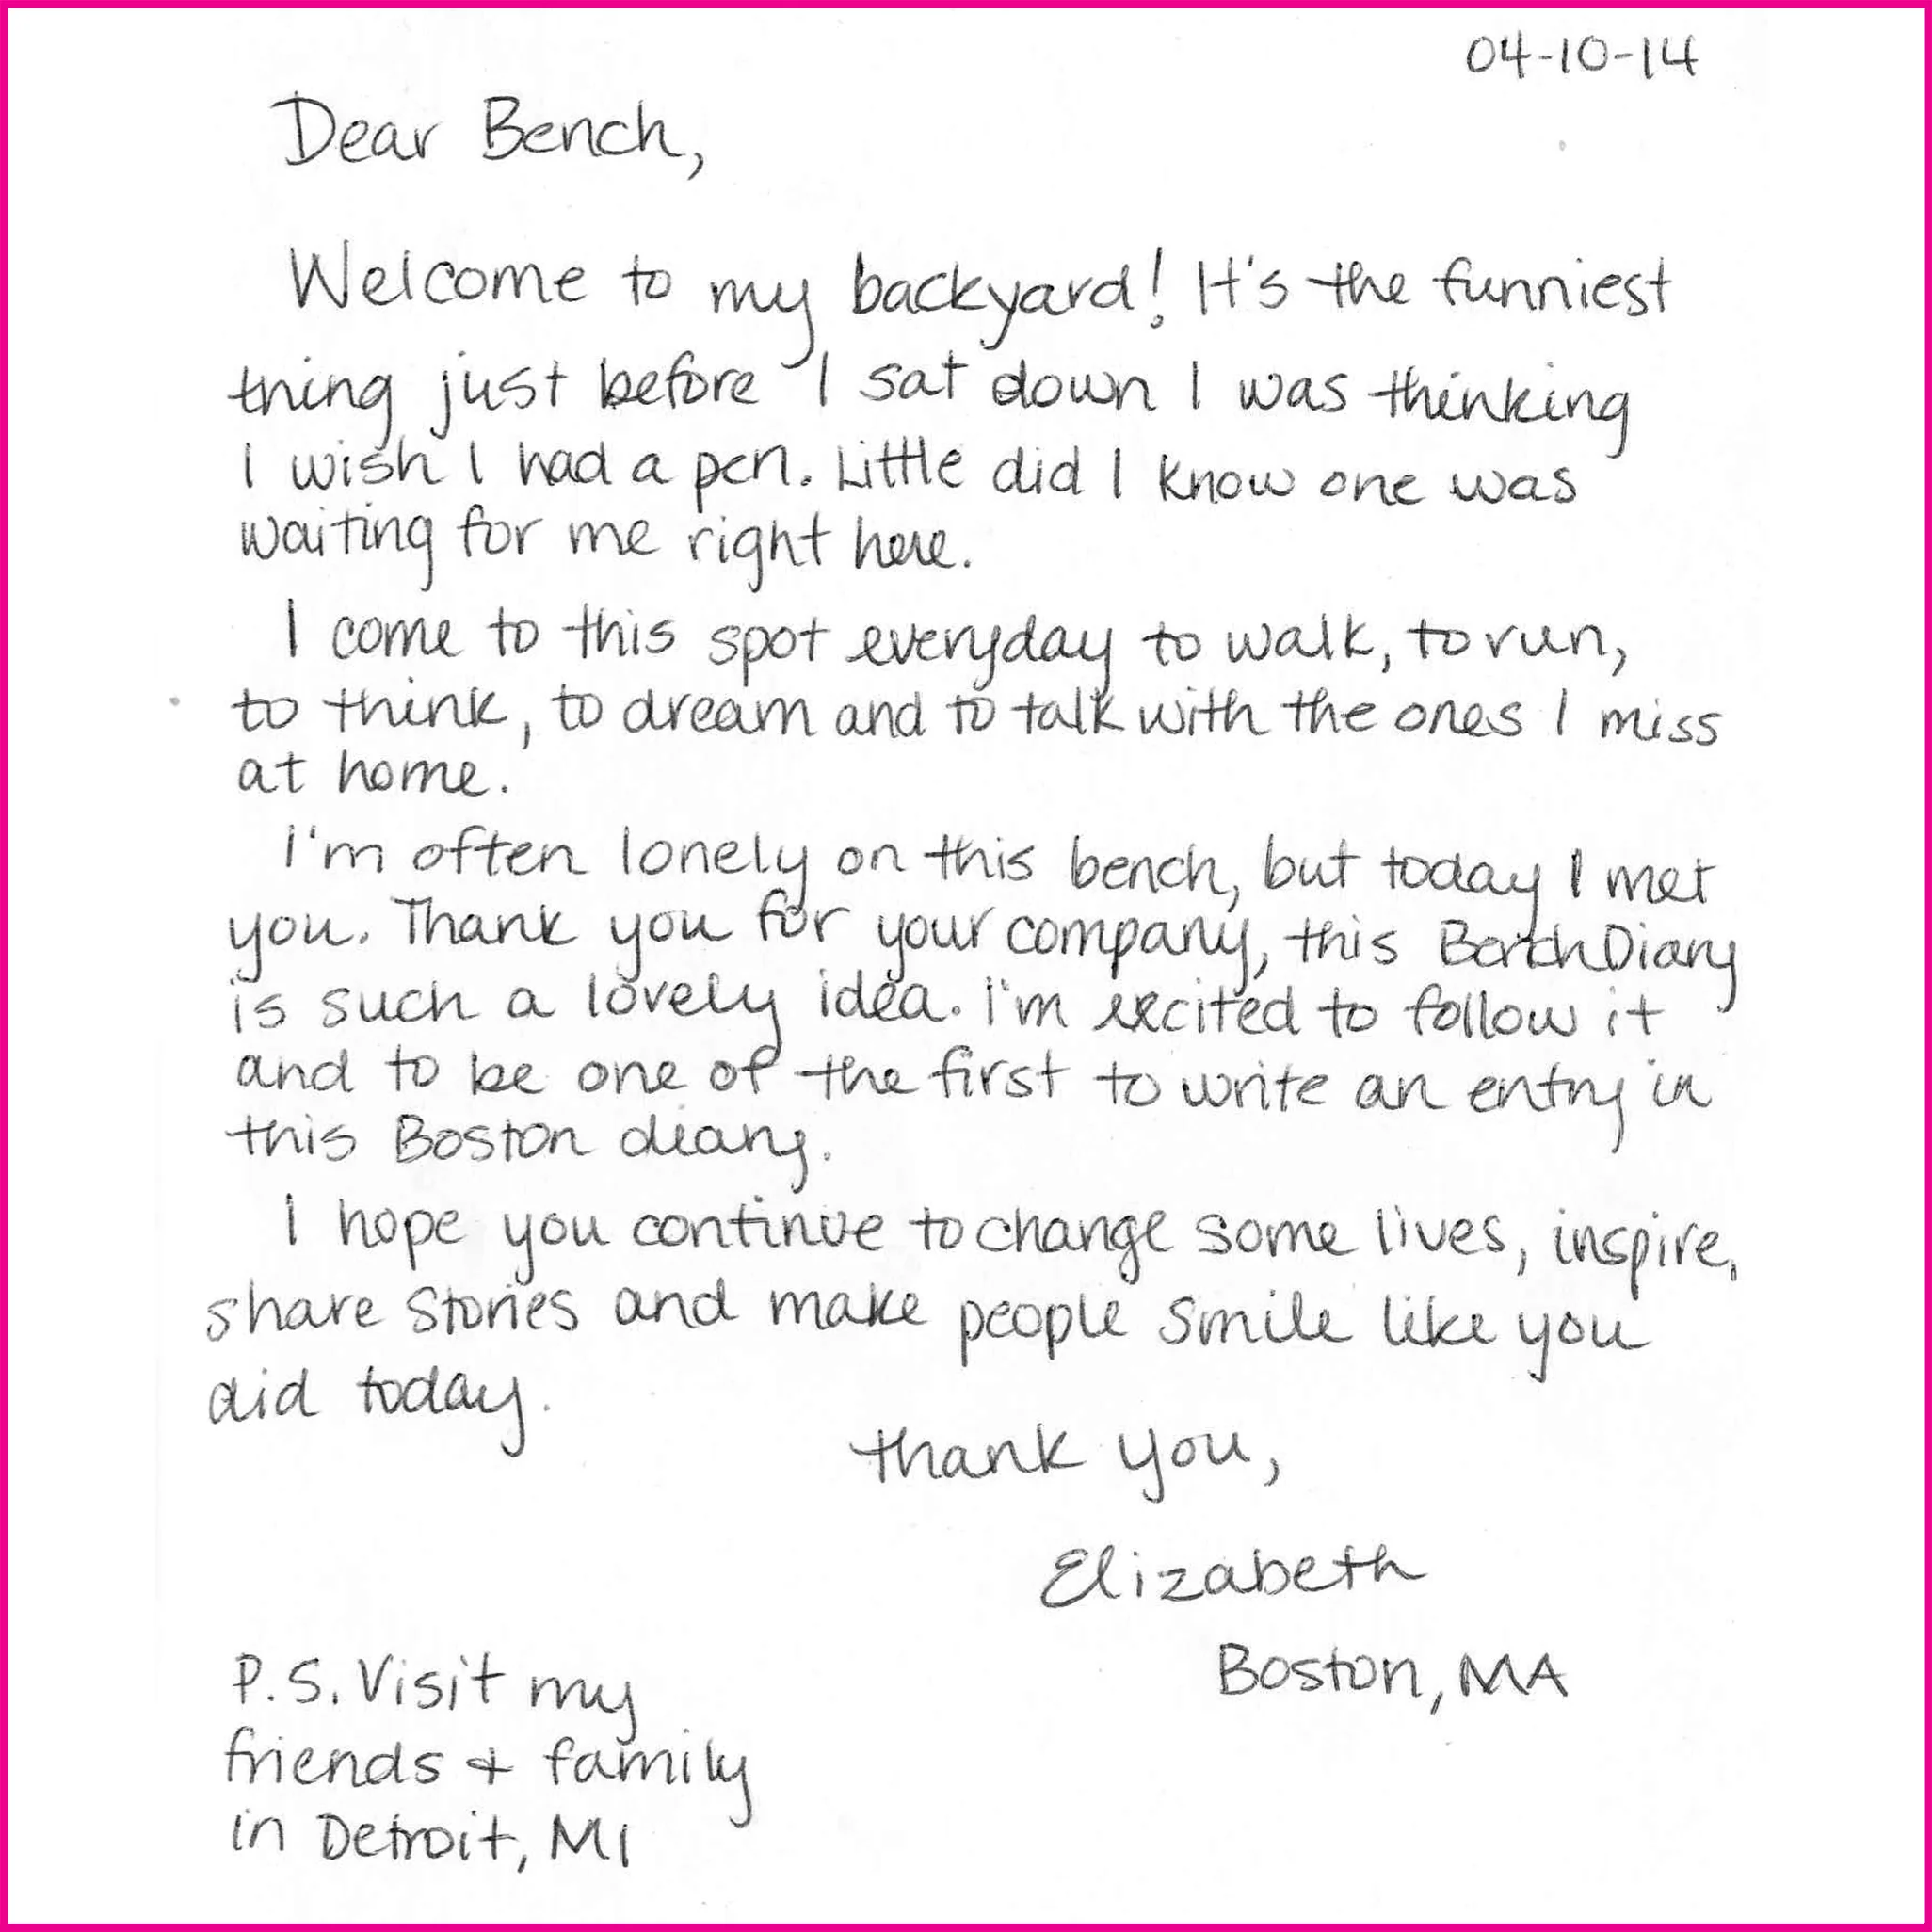 04-10-14
Dear Bench,
Welcome to my backyard! It's the funniest
thing just before I sat down I was thinking
I wish I had a pen. Little did I know one was
waiting for me right here.
I come to this spot everyday to walk, to run,
to think, to dream and to talk with the ones I miss
at home.
I'm often lonely on this bench, but today I met
you. Thank you for your company, this BenchDiary
is such a lovely idea. I'm excited to follow it
and to be one of the first to write an entry in
this Boston diary.
I hope you continue to change some lives, inspire,
share stories and make people smile like you
did today.
thank you,
Elizabeth
Boston, MA
P.S. Visit my
friends & family
in Detroit, MI